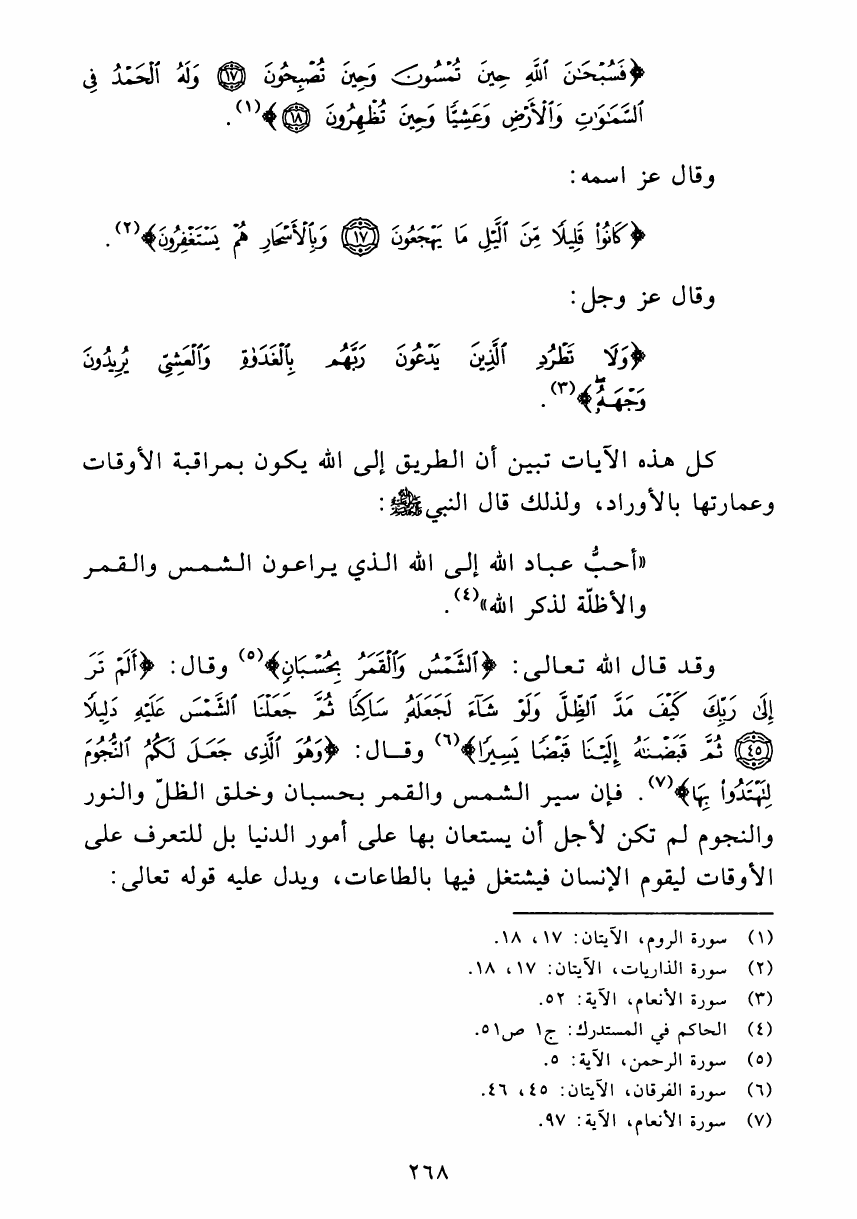 ﴿فَسُبْحَٰنَ ٱللَّهِ حِينَ تُمْسُونَ وَحِينَ تُصْبِحُونَ ۝١٧ وَلَهُ ٱلْحَمْدُ فِى
ٱلسَّمَٰوَٰتِ وَٱلْأَرْضِ وَعَشِيًّا وَحِينَ تُظْهِرُونَ ۝١٨﴾(١).
وقال عز اسمه:
﴿كَانُوا۟ قَلِيلًا مِّنَ ٱلَّيْلِ مَا يَهْجَعُونَ ۝١٧ وَبِٱلْأَسْحَارِ هُمْ يَسْتَغْفِرُونَ﴾(٢).
وقال عز وجل:
﴿وَلَا تَطْرُدِ ٱلَّذِينَ يَدْعُونَ رَبَّهُم بِٱلْغَدَوٰةِ وَٱلْعَشِىِّ يُرِيدُونَ
وَجْهَهُۥۖ﴾(٣).
كل هذه الآيات تبين أن الطريق إلى الله يكون بمراقبة الأوقات
وعمارتها بالأوراد، ولذلك قال النبي ﷺ:
«أحبُّ عباد الله إلى الله الذي يراعون الشمس والقمر
والأظلّة لذكر الله»(٤).
وقد قال الله تعالى: ﴿ٱلشَّمْسُ وَٱلْقَمَرُ بِحُسْبَانٍ﴾(٥) وقال: ﴿أَلَمْ تَرَ
إِلَىٰ رَبِّكَ كَيْفَ مَدَّ ٱلظِّلَّ وَلَوْ شَآءَ لَجَعَلَهُۥ سَاكِنًا ثُمَّ جَعَلْنَا ٱلشَّمْسَ عَلَيْهِ دَلِيلًا
۝٤٥ ثُمَّ قَبَضْنَٰهُ إِلَيْنَا قَبْضًا يَسِيرًا﴾(٦) وقال: ﴿وَهُوَ ٱلَّذِى جَعَلَ لَكُمُ ٱلنُّجُومَ
لِتَهْتَدُوا۟ بِهَا﴾(٧). فإن سير الشمس والقمر بحسبان وخلق الظلّ والنور
والنجوم لم تكن لأجل أن يستعان بها على أمور الدنيا بل للتعرف على
الأوقات ليقوم الإنسان فيشتغل فيها بالطاعات، ويدل عليه قوله تعالى:
(١) سورة الروم، الآيتان: ١٧، ١٨.
(٢) سورة الذاريات، الآيتان: ١٧، ١٨.
(٣) سورة الأنعام، الآية: ٥٢.
(٤) الحاكم في المستدرك: ج١ ص٥١.
(٥) سورة الرحمن، الآية: ٥.
(٦) سورة الفرقان، الآيتان: ٤٥، ٤٦.
(٧) سورة الأنعام، الآية: ٩٧.
٢٦٨